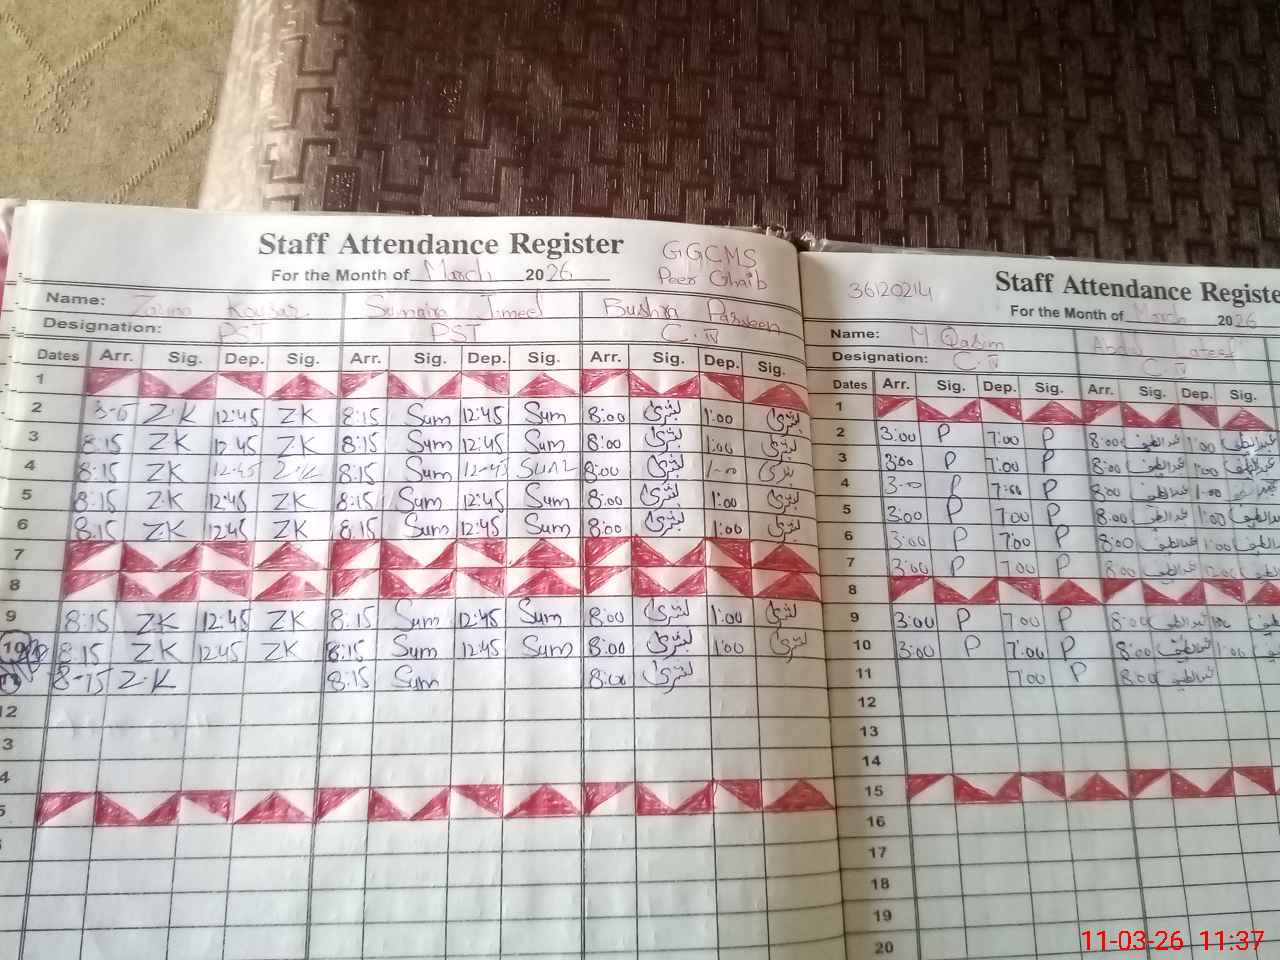 Staff Attendance Register GGCMS
For the Month of March 2026 Peer Ghaib
Name: Kousar Sumaira Jameel Bushra Parveen
Designation: PST PST C.IV
Dates Arr. Sig. Dep. Sig. Arr. Sig. Dep. Sig. Arr. Sig. Dep. Sig.
1
2 Z.K 12:45 ZK 8:15 Sum 12:45 Sum 8:00 بشریٰ 1:00 بشریٰ
3 8:15 ZK 12:45 ZK 8:15 Sum 12:45 Sum 8:00 بشریٰ 1:00 بشریٰ
4 8:15 ZK 12-45 Z.K 8:15 Sum 12-45 Sum 8:00 بشریٰ 1-00 بشریٰ
5 8:15 Z.K 12:45 ZK 8:15 Sum 12:45 Sum 8:00 بشریٰ 1:00 بشریٰ
6 8:15 ZK 12:45 ZK 8:15 Sum 12:45 Sum 8:00 بشریٰ 1:00 بشریٰ
7
8
9 8:15 ZK 12:45 ZK 8:15 Sum 12:45 Sum 8:00 بشریٰ 1:00 بشریٰ
10 8:15 ZK 12:45 ZK 8:15 Sum 12:45 Sum 8:00 بشریٰ 1:00 بشریٰ
8-15 Z.K 8:15 Sum 8:00 بشریٰ
12
3
4
5
36120214 Staff Attendance Registe
For the Month of March 2026
Name: M. Qasim Abdul Lateef
Designation: C.IV C.IV
Dates Arr. Sig. Dep. Sig. Arr. Sig. Dep. Sig.
1
2 3:00 P 7:00 P 8:00 عبدالطیف 1:00 عبدالطیف
3 3:00 P 7:00 P 8:00 عبدالطیف 1:00 عبدالطیف
4 3-00 P 7:00 P 8:00 عبدالطیف 1-00
5 3:00 P 7:00 P 8:00 عبدالطیف 1:00 عبدالطیف
6 3:00 P 7:00 P 8:00 عبدالطیف 1:00 عبدالطیف
7 3:00 P 7:00 P 8:00 عبدالطیف 12:00 عبدالطیف
8
9 3:00 P 7:00 P 8:00 عبدالطیف 1:00
10 3:00 P 7:00 P 8:00 عبدالطیف 1:00
11 7:00 P 8:00 عبدالطیف
12
13
14
15
16
17
18
19
20
11-03-26 11:37